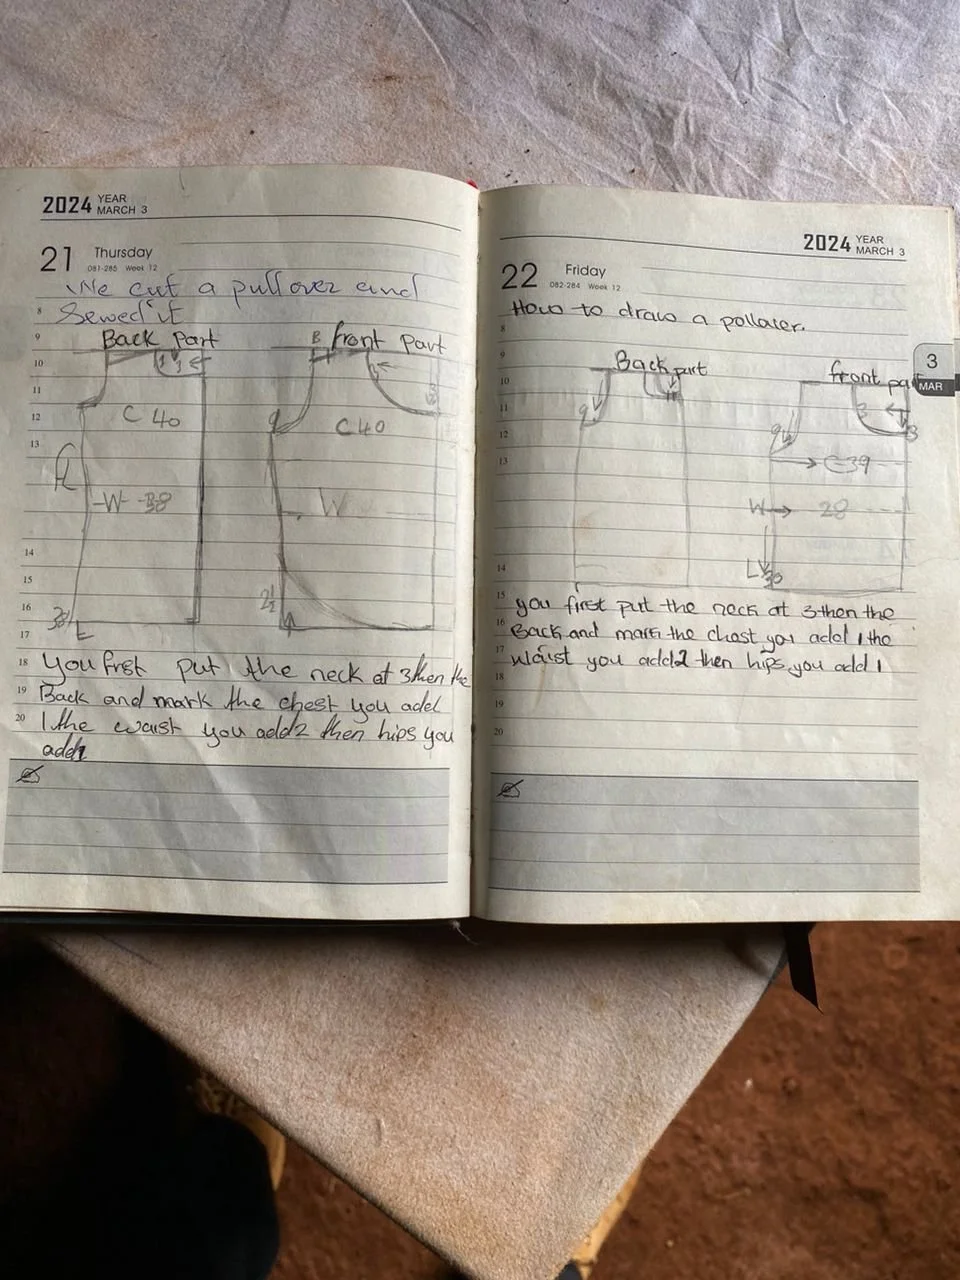 2024 YEAR
MARCH 3
21 Thursday
081-285 Week 12
We cut a pullover and
8 Sewed it
9 Back Part B front part
10
11
12 C 40 9 C 40
13
W 38 W
14
15
2½
16 38
17 L
18 You frst put the neck at 3 then the
19 Back and mark the chest you add
20 1 the waist you add 2 then hips you
add 1
2024 YEAR
MARCH 3
22 Friday
082-284 Week 12
How to draw a pollacer.
8
9 Back part front pa
3
MAR
10
11 9 3
12 9 3
13 C 39
W 28
14 L 30
15 you first put the neck at 3 then the
16 Back and mark the chest you add 1 the
17 waist you add 2 then hips you add 1
18
19
20